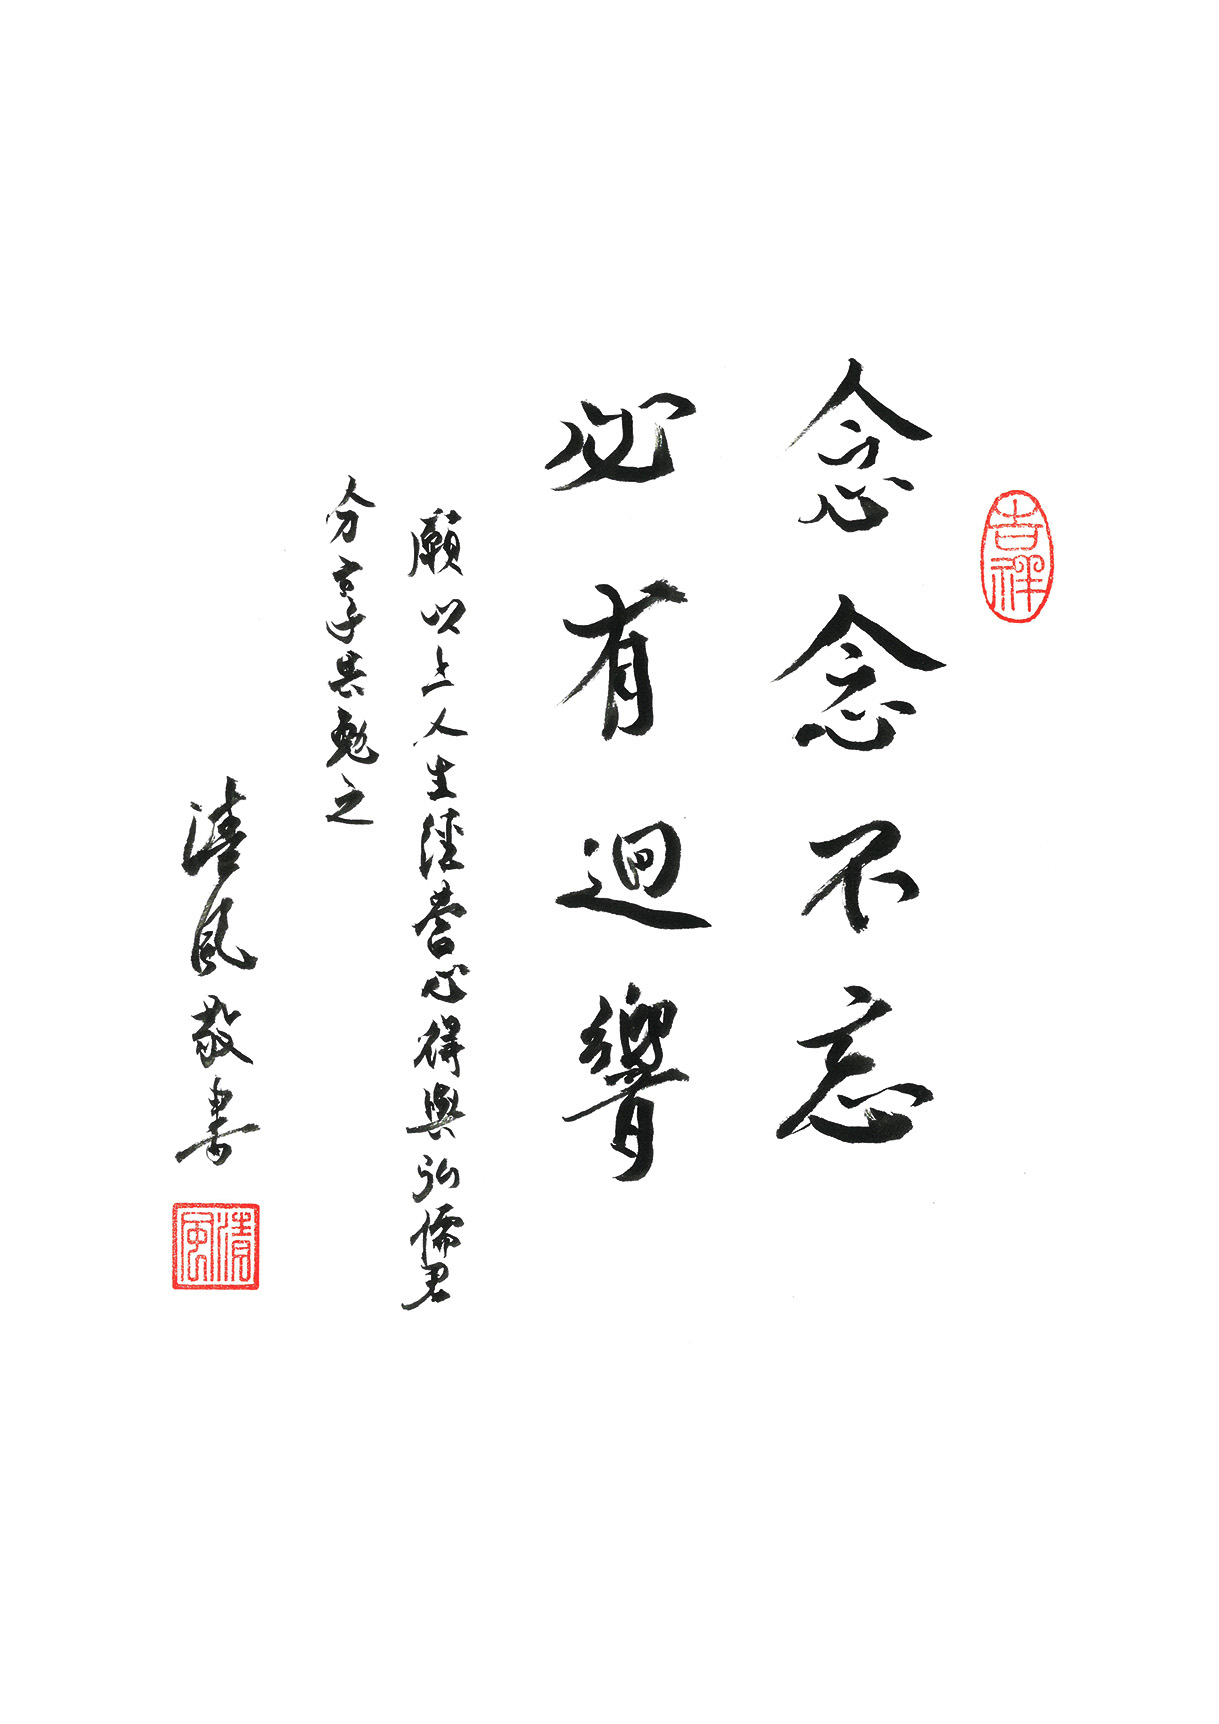 吉祥
念念不忘
必有迴響
願以上人生經營心得與弘儒君
分享共勉之
清風敬書
清風